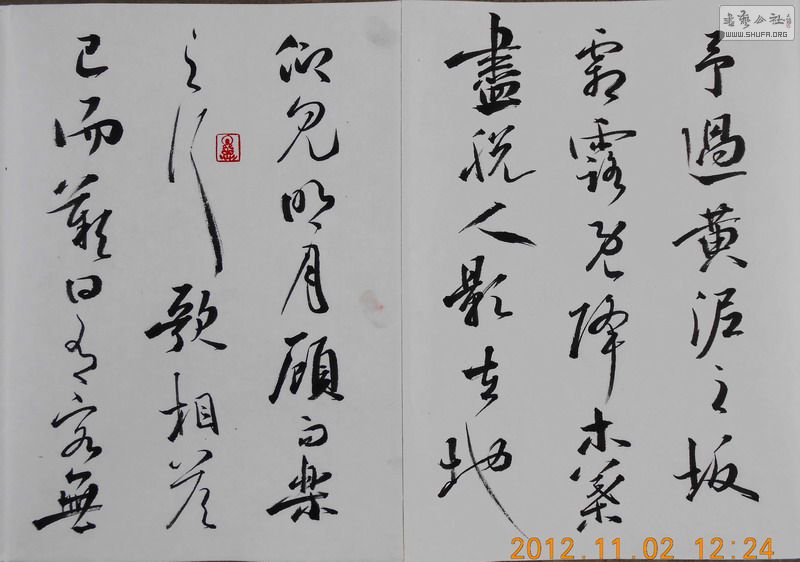 予過黄泥之坂
霜露既降木葉
盡脱人影在地
仰見明月顧而樂
之行歌相答
已而歎曰有客無
書藝公社
WWW.SHUFA.ORG
2012.11.02 12:24